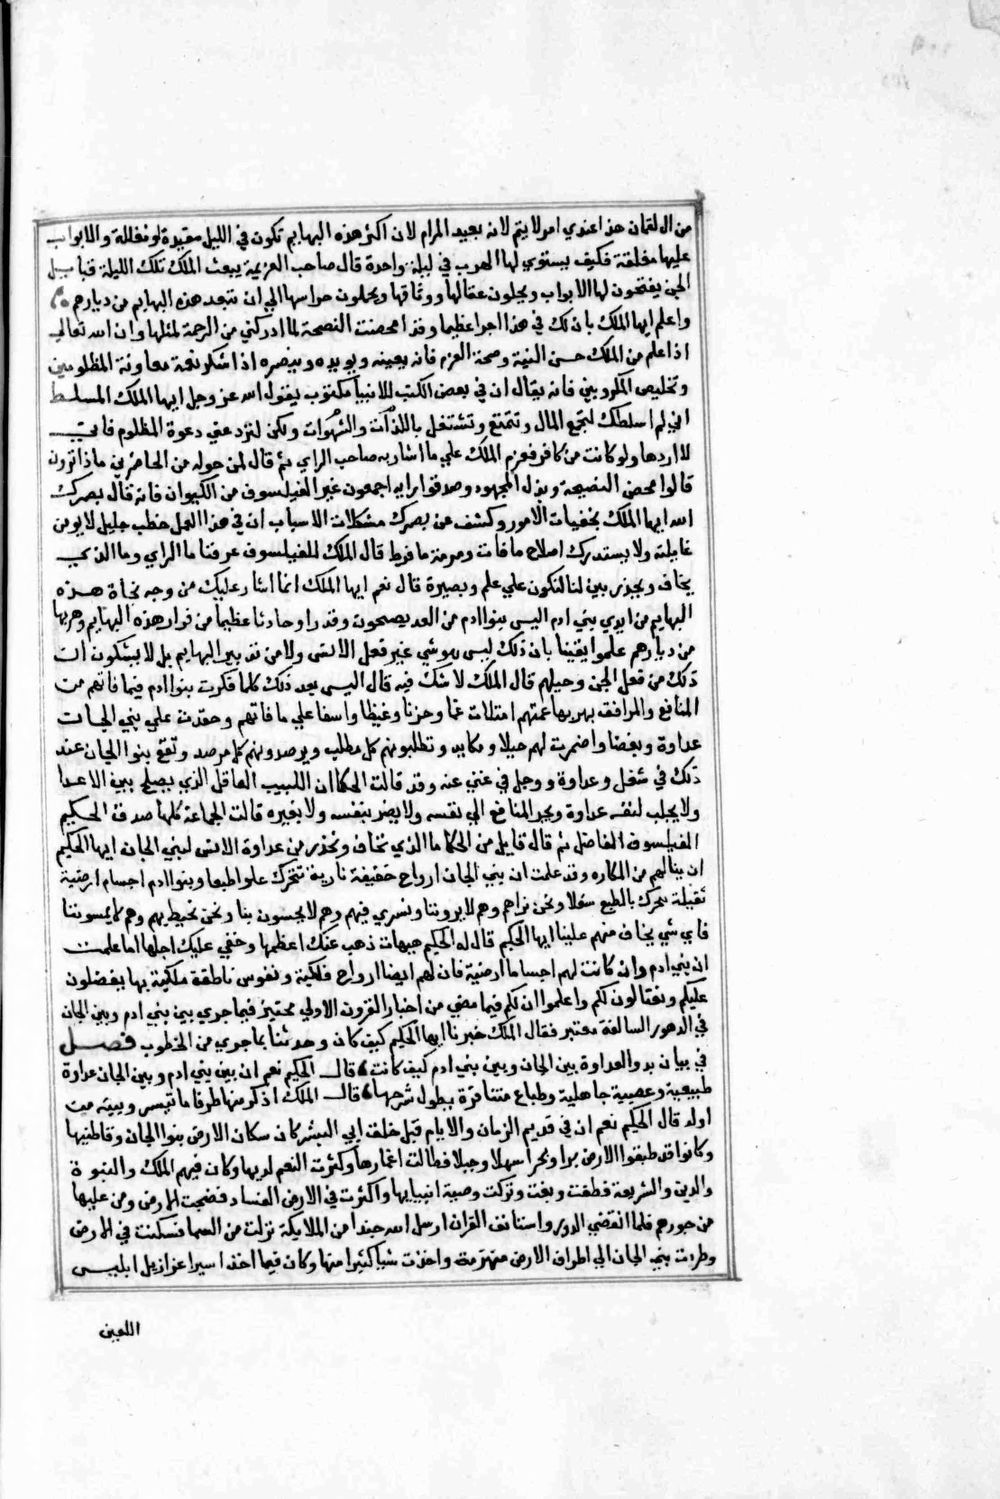 من ال لقمان هذا عندي امر لا يتم لانه بعيد المرام لان اكثر هذه البهايم تكون في الليل مقيدة او مغللة والابواب
عليها مغلقة فكيف يستوي لها الهرب في ليلة واحدة قال صاحب العزيمة يبعث الملك تلك الليلة قبايل
الجن يفتحون لها الابواب ويحلون عقالها ووثاقها ويحملون حراسها الي ان تبعد هذه البهايم من ديارهم
واعلم ايها الملك بان لك في هذا اجرا عظيما وقد امحضت النصيحة لما ادركني من الرحمة لمثلها وان الله تعالي
اذا علم من الملك حسن النية وصحة العزم فانه يعينه ويويده وينصره اذا شكر نعمة معاونة المظلومين
وتخليص المكروبين فانه يقال ان في بعض الكتب للانبيا مكتوب يقول الله عز وجل ايها الملك المسلط
اني لم اسلطك لتجمع المال وتتمتع وتشتغل باللذات والشهوات ولكن لترد عني دعوة المظلوم فاني
لا اردها ولو كانت من كافر فعزم الملك علي ما اشار به صاحب الراي ثم قال لمن حوله من الحاضرين ماذا ترون
قالوا محض النصيحة وبذل المجهود وصدقوا رايه اجمعون غير الفيلسوف من الكيوان فانه قال بصرك
الله ايها الملك بخفيات الامور وكشف عن بصرك مشكلات الاسباب ان في هذا العمل خطب جليل لا يومن
غايلته ولا يستدرك اصلاح ما فات ومرمة ما فرط قال الملك للفيلسوف عرفنا ما الراي وما الذي
يخاف ويحذر بين لنا لنكون علي علم وبصيرة قال نعم ايها الملك انما اشار عليك من وجه نجاة هذه
البهايم من ايدي بني ادم اليس بنوا ادم من الغد يصبحون وقد راوا حادثا عظيما من فرار هذه البهايم وهربها
من ديارهم علموا يقينا بان ذلك ليس هو شي غير فعل الانس ولا من تدبير البهايم بل لا يشكون ان
ذلك من فعل الجن وحيلهم قال الملك لا شك فيه قال اليس بعد ذلك كلما فكرت بنوا ادم فيما فاتهم من
المنافع والمرافق بهربها عنهم امتلات غما وحزنا وغيظا واسفا علي ما فاتهم وحقدت علي بني الجان
عداوة وبغضا واضمرت لهم حيلا ومكايد وتطلبونهم كل مطلب ويرصدونهم كل مرصد وتقع بنوا الجان عند
ذلك في شغل وعداوة ووجل في غني عنه وقد قالت الحكما ان اللبيب العاقل الذي يصلح بين الاعدا
ولا يجلب لنفسه عداوة ويجر المنافع الي نفسه ولا يضر بنفسه ولا بغيره قالت الجماعة كلها صدق الحكيم
الفيلسوف الفاضل ثم قال قايل من الحكما ما الذي تخاف وتحذر من عداوة الانس لبني الجان ايها الحكيم
ان ينالهم من المكاره وقد علمت ان بني الجان ارواح خفيفة نارية تتحرك علوا طبعا وبنوا ادم اجسام ارضية
ثقيلة تتحرك بالطبع سفلا ونحن نراهم وهم لا يروننا ونسري فيهم وهم لا يحسون بنا ونحن نحيط بهم وهم لا يمسوننا
فاي شي يخاف منهم علينا ايها الحكيم قال له الحكيم هيهات ذهب عنك اعظمها وخفي عليك اجلها اما علمت
ان بني ادم وان كانت لهم اجساما ارضية فان لهم ايضا ارواح فلكية ونفوس ناطقة ملكية بها يفضلون
عليكم ويغتالون لكم واعلموا ان لكم فيما مضي من اخبار القرون الاولي فيما جري بين بني ادم وبين الجان
في الدهور السالفة معتبر فقال الملك خبرنا ايها الحكيم كيف كان وحدثنا بما جري من الخطوب فصل
في بيان بدو العداوة بين الجان وبين بني ادم كيف كانت قال الحكيم نعم ان بين بني ادم وبين الجان عداوة
طبيعية وعصبية جاهلية وطباع متنافرة يطول شرحها قال الملك اذكر منها طرفا ما تيسر وبينه من
اوله قال الحكيم نعم ان في قديم الزمان والايام قبل خلق ابي البشر كان سكان الارض بنوا الجان وقاطنيها
وكانوا قد طبقوا الارض برا وبحرا سهلا وجبلا فطالت اعمارها وكثرت النعم لديها وكان فيهم الملك والنبوة
والدين والشريعة فطغت وبغت وتركت وصية انبيايها واكثرت في الارض الفساد فضجت الارض ومن عليها
من جورهم فلما انقضي الدور واستانف القران ارسل الله جندا من الملايكة نزلت من السما فسكنت في الارض
وطردت بني الجان الي اطراف الارض منهزمة واخذت سبيا كثيرا منها وكان فيما اخذ اسيرا عزازيل ابليس
اللعين